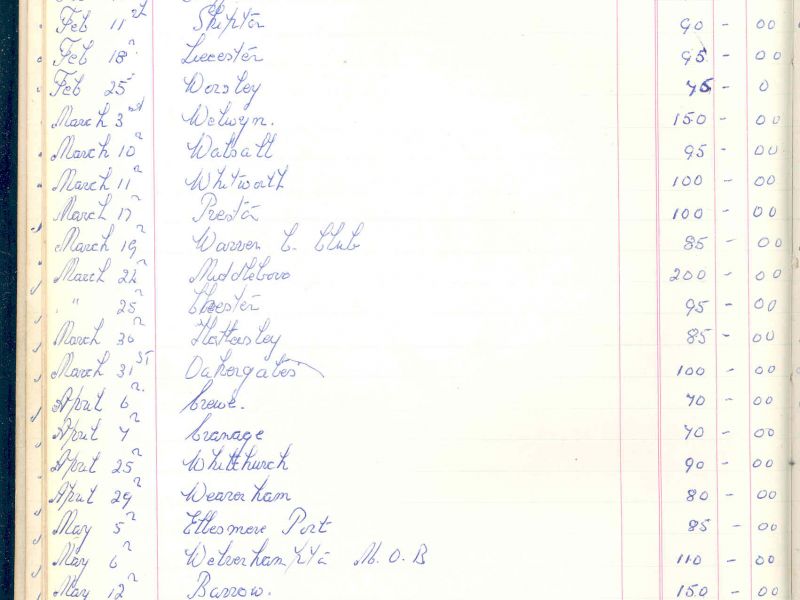 Feb 11th Skipton 90 - 00
Feb 18th Leicester 95 - 00
Feb 25th Worsley 75 - 0
March 3rd Welwyn. 150 - 00
March 10th Walsall 95 - 00
March 11th Whitworth 100 - 00
March 17th Preston 100 - 00
March 19th Warren C. Club 85 - 00
March 24th Middlebovo 200 - 00
" 25th Chester 95 - 00
March 30th Hattersley 85 - 00
March 31st Oakengates 100 - 00
April 6th Crewe. 70 - 00
April 7th Cranage 70 - 00
April 25th Whitchurch 90 - 00
April 29th Weaverham 80 - 00
May 5th Ellesmere Port 85 - 00
May 6th M.O.B 110 - 00
May 12th Barrow. 150 - 00